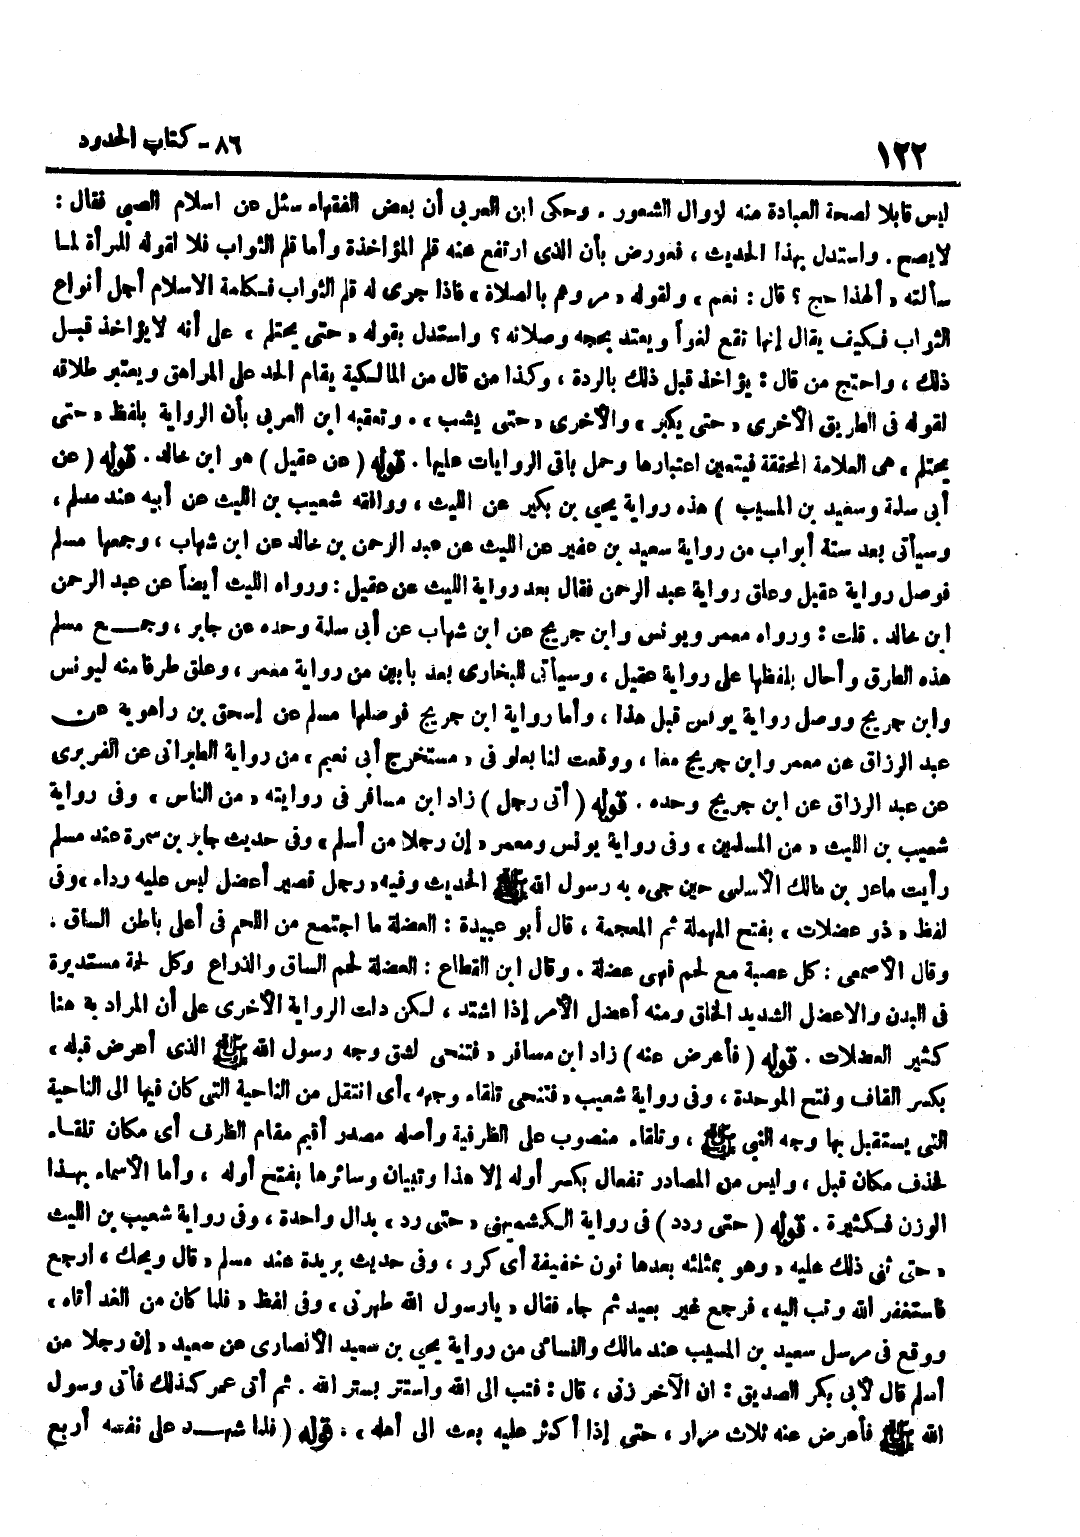 ١٢٢
٨٦ - كتاب الحدود
ليس قابلا لصحة العبادة منه لزوال الشعور . وحكى ابن العربى أن بعض الفقهاء سئل عن اسلام الصبى فقال :
لايصح . واستدل بهذا الحديث ، فعورض بأن الذى ارتفع عنه قلم المؤاخذة وأما قلم الثواب فلا لقوله للمرأة لما
سألته « ألهذا حج ؟ قال : نعم » ولقوله « مروهم بالصلاة » فاذا جرى له قلم الثواب فكلمة الاسلام أجل أنواع
الثواب فكيف يقال إنها تقع لغواً ويعتد بحجه وصلاته ؟ واستدل بقوله « حتى يحتلم » على أنه لايؤاخذ قبل
ذلك ، واحتج من قال : يؤاخذ قبل ذلك بالردة ، وكذا من قال من المالكية يقام الحد على المراهق ويعتبر طلاقه
لقوله فى الطريق الأخرى « حتى يكبر » والأخرى « حتى يشب » . وتعقبه ابن العربى بأن الرواية بلفظ « حتى
يحتلم » هى العلامة المحققة فيتعين اعتبارها وحمل باقى الروايات عليها . قوله ( عن عقيل ) هو ابن خالد . قوله ( عن
أبى سلمة وسعيد بن المسيب ) هذه رواية يحيى بن بكير عن الليث ، ووافقه شعيب بن الليث عن أبيه عند مسلم ،
وسيأتى بعد ستة أبواب من رواية سعيد بن عفير عن الليث عن عبد الرحمن بن خالد عن ابن شهاب ، وجمعها مسلم
فوصل رواية عقيل وعلق رواية عبد الرحمن فقال بعد رواية الليث عن عقيل : ورواه الليث أيضاً عن عبد الرحمن
ابن خالد . قلت : ورواه معمر ويونس وابن جريج عن ابن شهاب عن أبى سلمة وحده عن جابر ، وجمع مسلم
هذه الطرق وأحال بلفظها على رواية عقيل ، وسيأتى للبخارى بعد بابين من رواية معمر ، وعلق طرفا منه ليونس
وابن جريج ووصل رواية يونس قبل هذا ، وأما رواية ابن جريج فوصلها مسلم عن إسحق بن راهوية عن
عبد الرزاق عن معمر وابن جريج معا ، ووقعت لنا بعلو فى « مستخرج أبى نعيم » من رواية الطبرانى عن الفربرى
عن عبد الرزاق عن ابن جريج وحده . قوله ( أتى رجل ) زاد ابن مسافر فى روايته « من الناس » وفى رواية
شعيب بن الليث « من المسلمين » وفى رواية يونس ومعمر « إن رجلا من أسلم » وفى حديث جابر بن سمرة عند مسلم
رأيت ماعز بن مالك الأسلمى حين جىء به رسول الله ﷺ الحديث وفيه « رجل قصير أعضل ليس عليه رداء » وفى
لفظ « ذو عضلات » بفتح المهملة ثم المعجمة ، قال أبو عبيدة : العضلة ما اجتمع من اللحم فى أعلى باطن الساق .
وقال الأصمعى : كل عصبة مع لحم فهى عضلة . وقال ابن القطاع : العضلة لحم الساق والذراع وكل لحمة مستديرة
فى البدن والاعضل الشديد الخلق ومنه أعضل الأمر إذا اشتد ، لكن دلت الرواية الأخرى على أن المراد به هنا
كثير العضلات . قوله ( فأعرض عنه ) زاد ابن مسافر « فتنحى لشق وجه رسول الله ﷺ الذى أعرض قبله »
بكسر القاف وفتح الموحدة ، وفى رواية شعيب « فتنحى تلقاء وجهه » أى انتقل من الناحية التى كان فيها الى الناحية
التى يستقبل بها وجه النبى ﷺ ، وتلقاء منصوب على الظرفية وأصله مصدر أقيم مقام الظرف أى مكان تلقاء
فحذف مكان قبل ، وليس من المصادر تفعال بكسر أوله إلا هذا وتبيان وسائرها بفتح أوله ، وأما الأسماء بهذا
الوزن فكثيرة . قوله ( حتى ردد ) فى رواية الكشميهنى « حتى رد » بدال واحدة ، وفى رواية شعيب بن الليث
« حتى ثنى ذلك عليه » وهو بمثلثه بعدها نون خفيفة أى كرر ، وفى حديث بريدة عند مسلم « قال ويحك ، ارجع
فاستغفر الله وتب اليه ، فرجع غير بعيد ثم جاء فقال « يارسول الله طهرنى » وفى لفظ « فلما كان من الغد أتاه »
ووقع فى مرسل سعيد بن المسيب عند مالك والنسائى من رواية يحيى بن سعيد الأنصارى عن سعيد « إن رجلا من
أسلم قال لأبى بكر الصديق : ان الآخر زنى ، قال : فتب الى الله واستتر بستر الله . ثم أتى عمر كذلك فأتى رسول
الله ﷺ فأعرض عنه ثلاث مرار ، حتى إذا أكثر عليه بعث الى أهله » . قوله ( فلما شهد على نفسه أربع